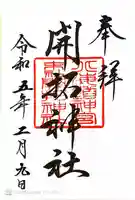 奉拝
開拓神社
令和五年二月九日